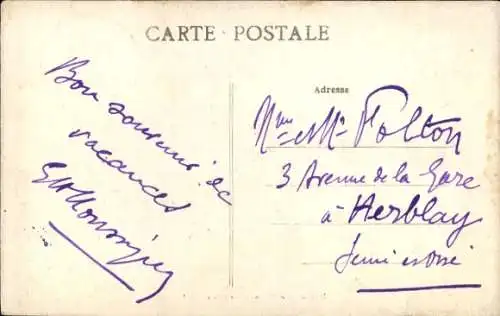 CARTE POSTALE
Bon souvenir de
vacances
Adresse
Mme et Mr Folton
3 Avenue de la Gare
à Herblay
Seine et Oise